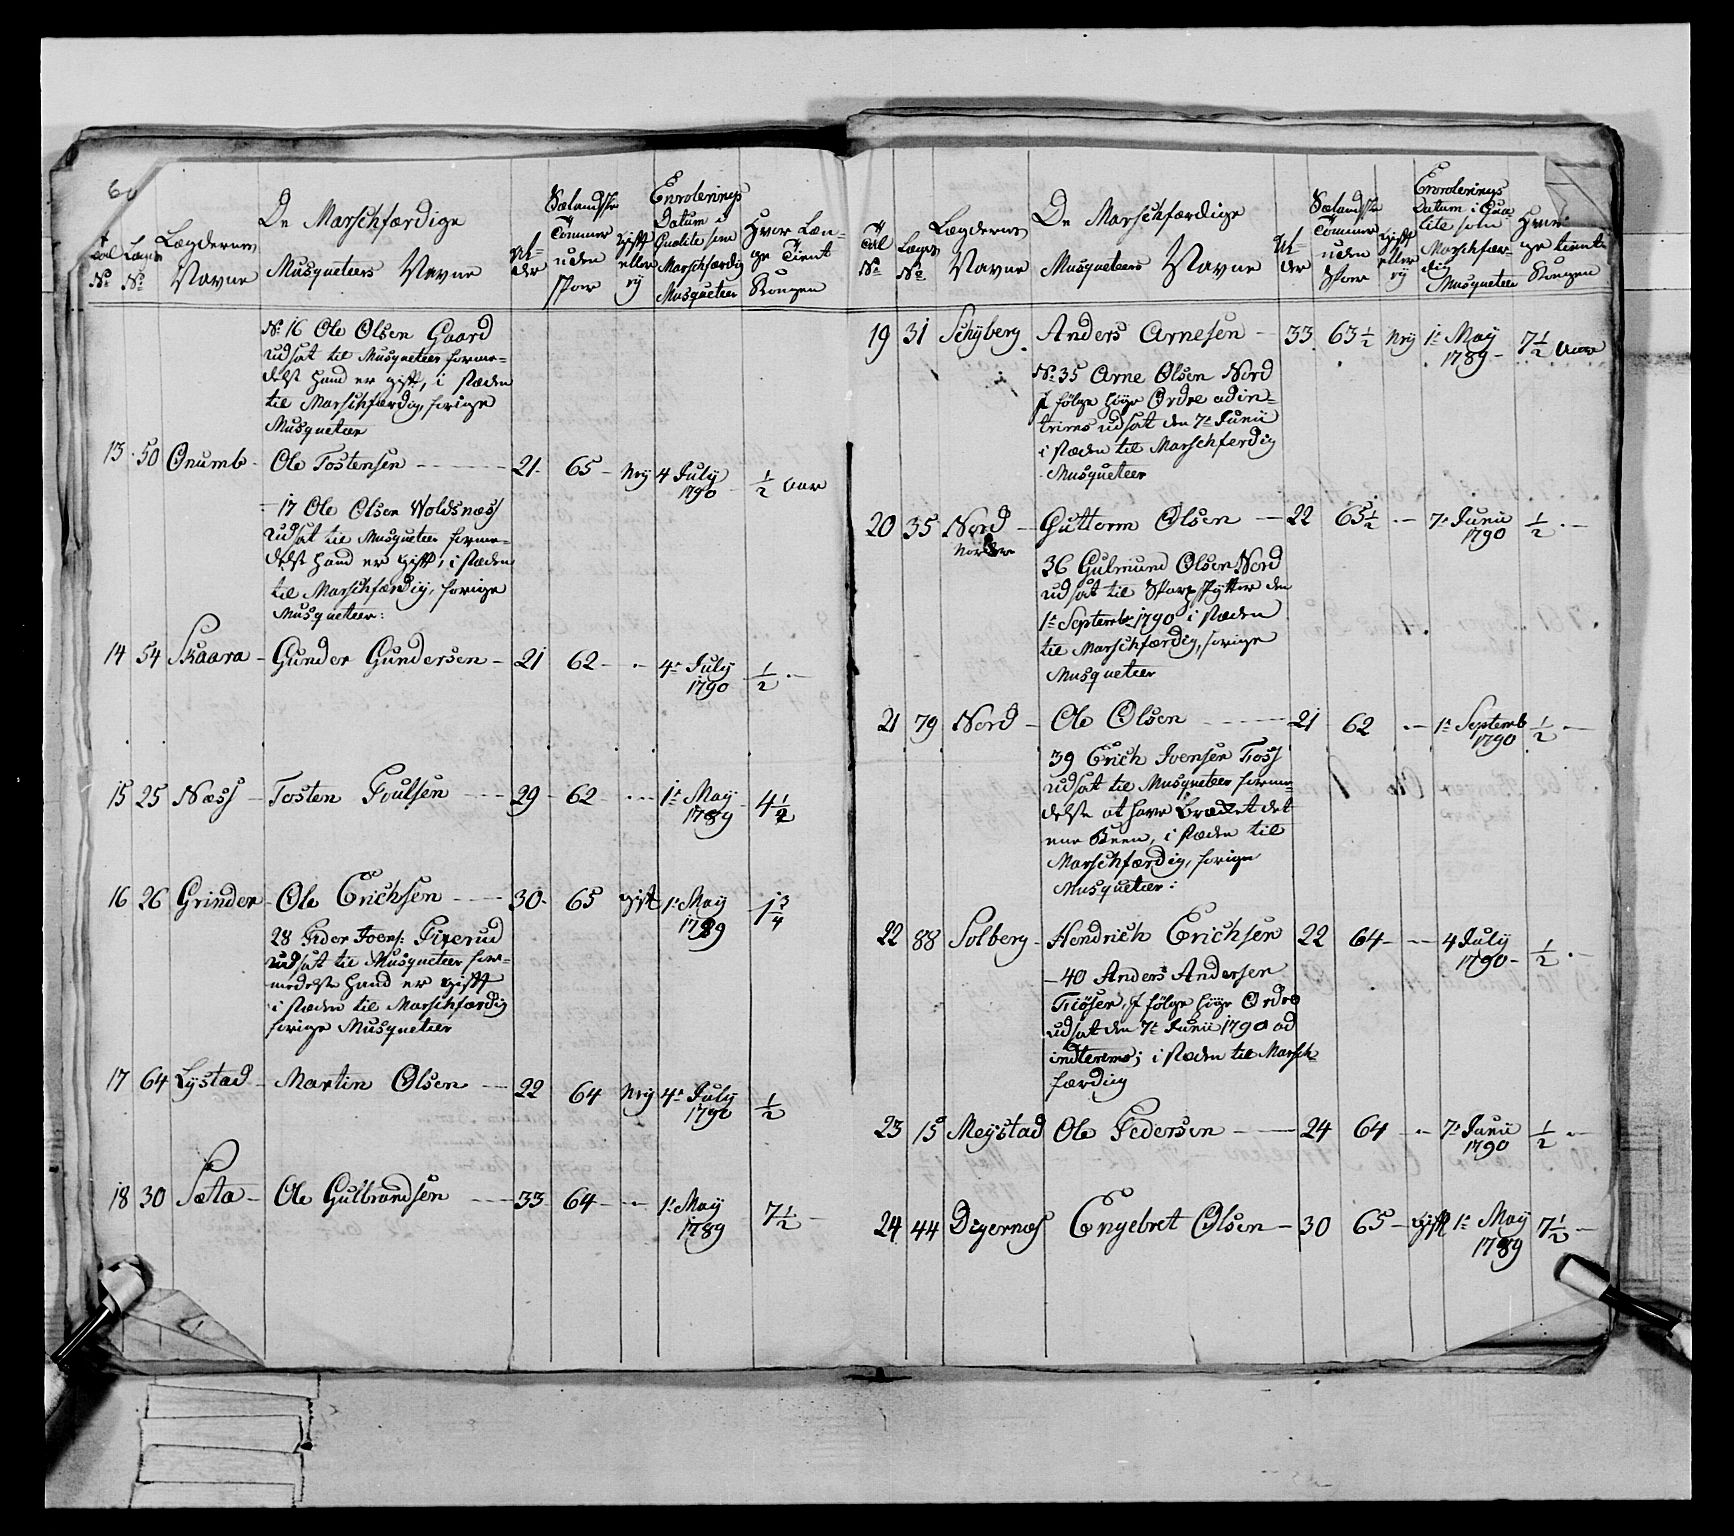 60
Tal No
Lægds No
Lægdernes Navne
De Marschfærdige Musqueteers Navne
Alder
Sælandske Tommer uden Skoe
Gift eller ey
Enrolerings Datum i Qualite som Marschfærdig Musqueteer
Hvor Længe Tient Kongen
No 16 Ole Olsen Gaard
udsat til Musqueteer forme-
delst hand er gift, i stæden
til Marschfærdig, forige
Musqueteer
13 50 Onumb Ole Tostensen 21 65 Ney 4 July 1790 1/2 Aar
17 Ole Olsen Woldsnæss
udsat til Musqueteer forme-
delst hand er gift, i stæden
til Marschfærdig, forige
Musqueteer:
14 54 Skaara Gunder Gundersen 21 62 4e July 1790 1/2
15 25 Næss Tosten Poulsen 29 62 1e May 1789 4 1/2
16 26 Grinder Ole Erichsen 30 65 gift 1e May 1789 1 3/4
28 Peder Joens:
udsat til Musqueteer for-
medelst hand er gift
i stæden til Marschfærdig
forige Musqueteer
17 64 Lystad Martin Olsen 22 64 Ney 4e July 1790 1/2
18 30 Sæta Ole Gulbrandsen 33 64 1e May 1789 7 1/2
Tal No
Lægds No
Lægdernes Navne
De Marschfærdige Musqueteers Navne
Alder
Sælandske Tommer uden Skoe
Gift eller ey
Enrolerings Datum i Qualite som Marschfærdig Musqueteer
Hvor længe tient Kongen
19 31 Schyberg Anders Arnesen 33 63 1/2 Ney 1e May 1789 7 1/2 Aar
No 35 Arne Olsen Nord
I følge høye Ordre adin-
trims udsat den 7e Junii
i stæden til Marschferdig
Musqueteer
20 35 Nord Guttorm Olsen 22 65 1/2 7e Junii 1790 1/2
Nordre
36 Gulmund Olsen Nord
udsat til Skarpskytter den
1e Septembr 1790 i stæden
til Marschfærdig, forige
Musqueteer
21 79 Nord Ole Olsen 21 62 1e Septemb 1790 1/2
39 Erich Joensen Foss
udsat til Musqueteer forme-
delst at have Brækket det
ene Been, i stæden til
Marschfærdig, forige
Musqueteer:
22 88 Solberg Hendrich Erichsen 22 64 4 July 1790 1/2
40 Anders Andersen
Tiøser, I følge høye Ordre
udsat den 7e Junii 1790 ad
indterems; i stæden til Marsch-
færdig
23 15 Meystad Ole Pedersen 24 64 7e Junii 1790 1/2
24 44 Digernæs Engebret Olsen 30 65 gift 1e May 1789 7 1/2